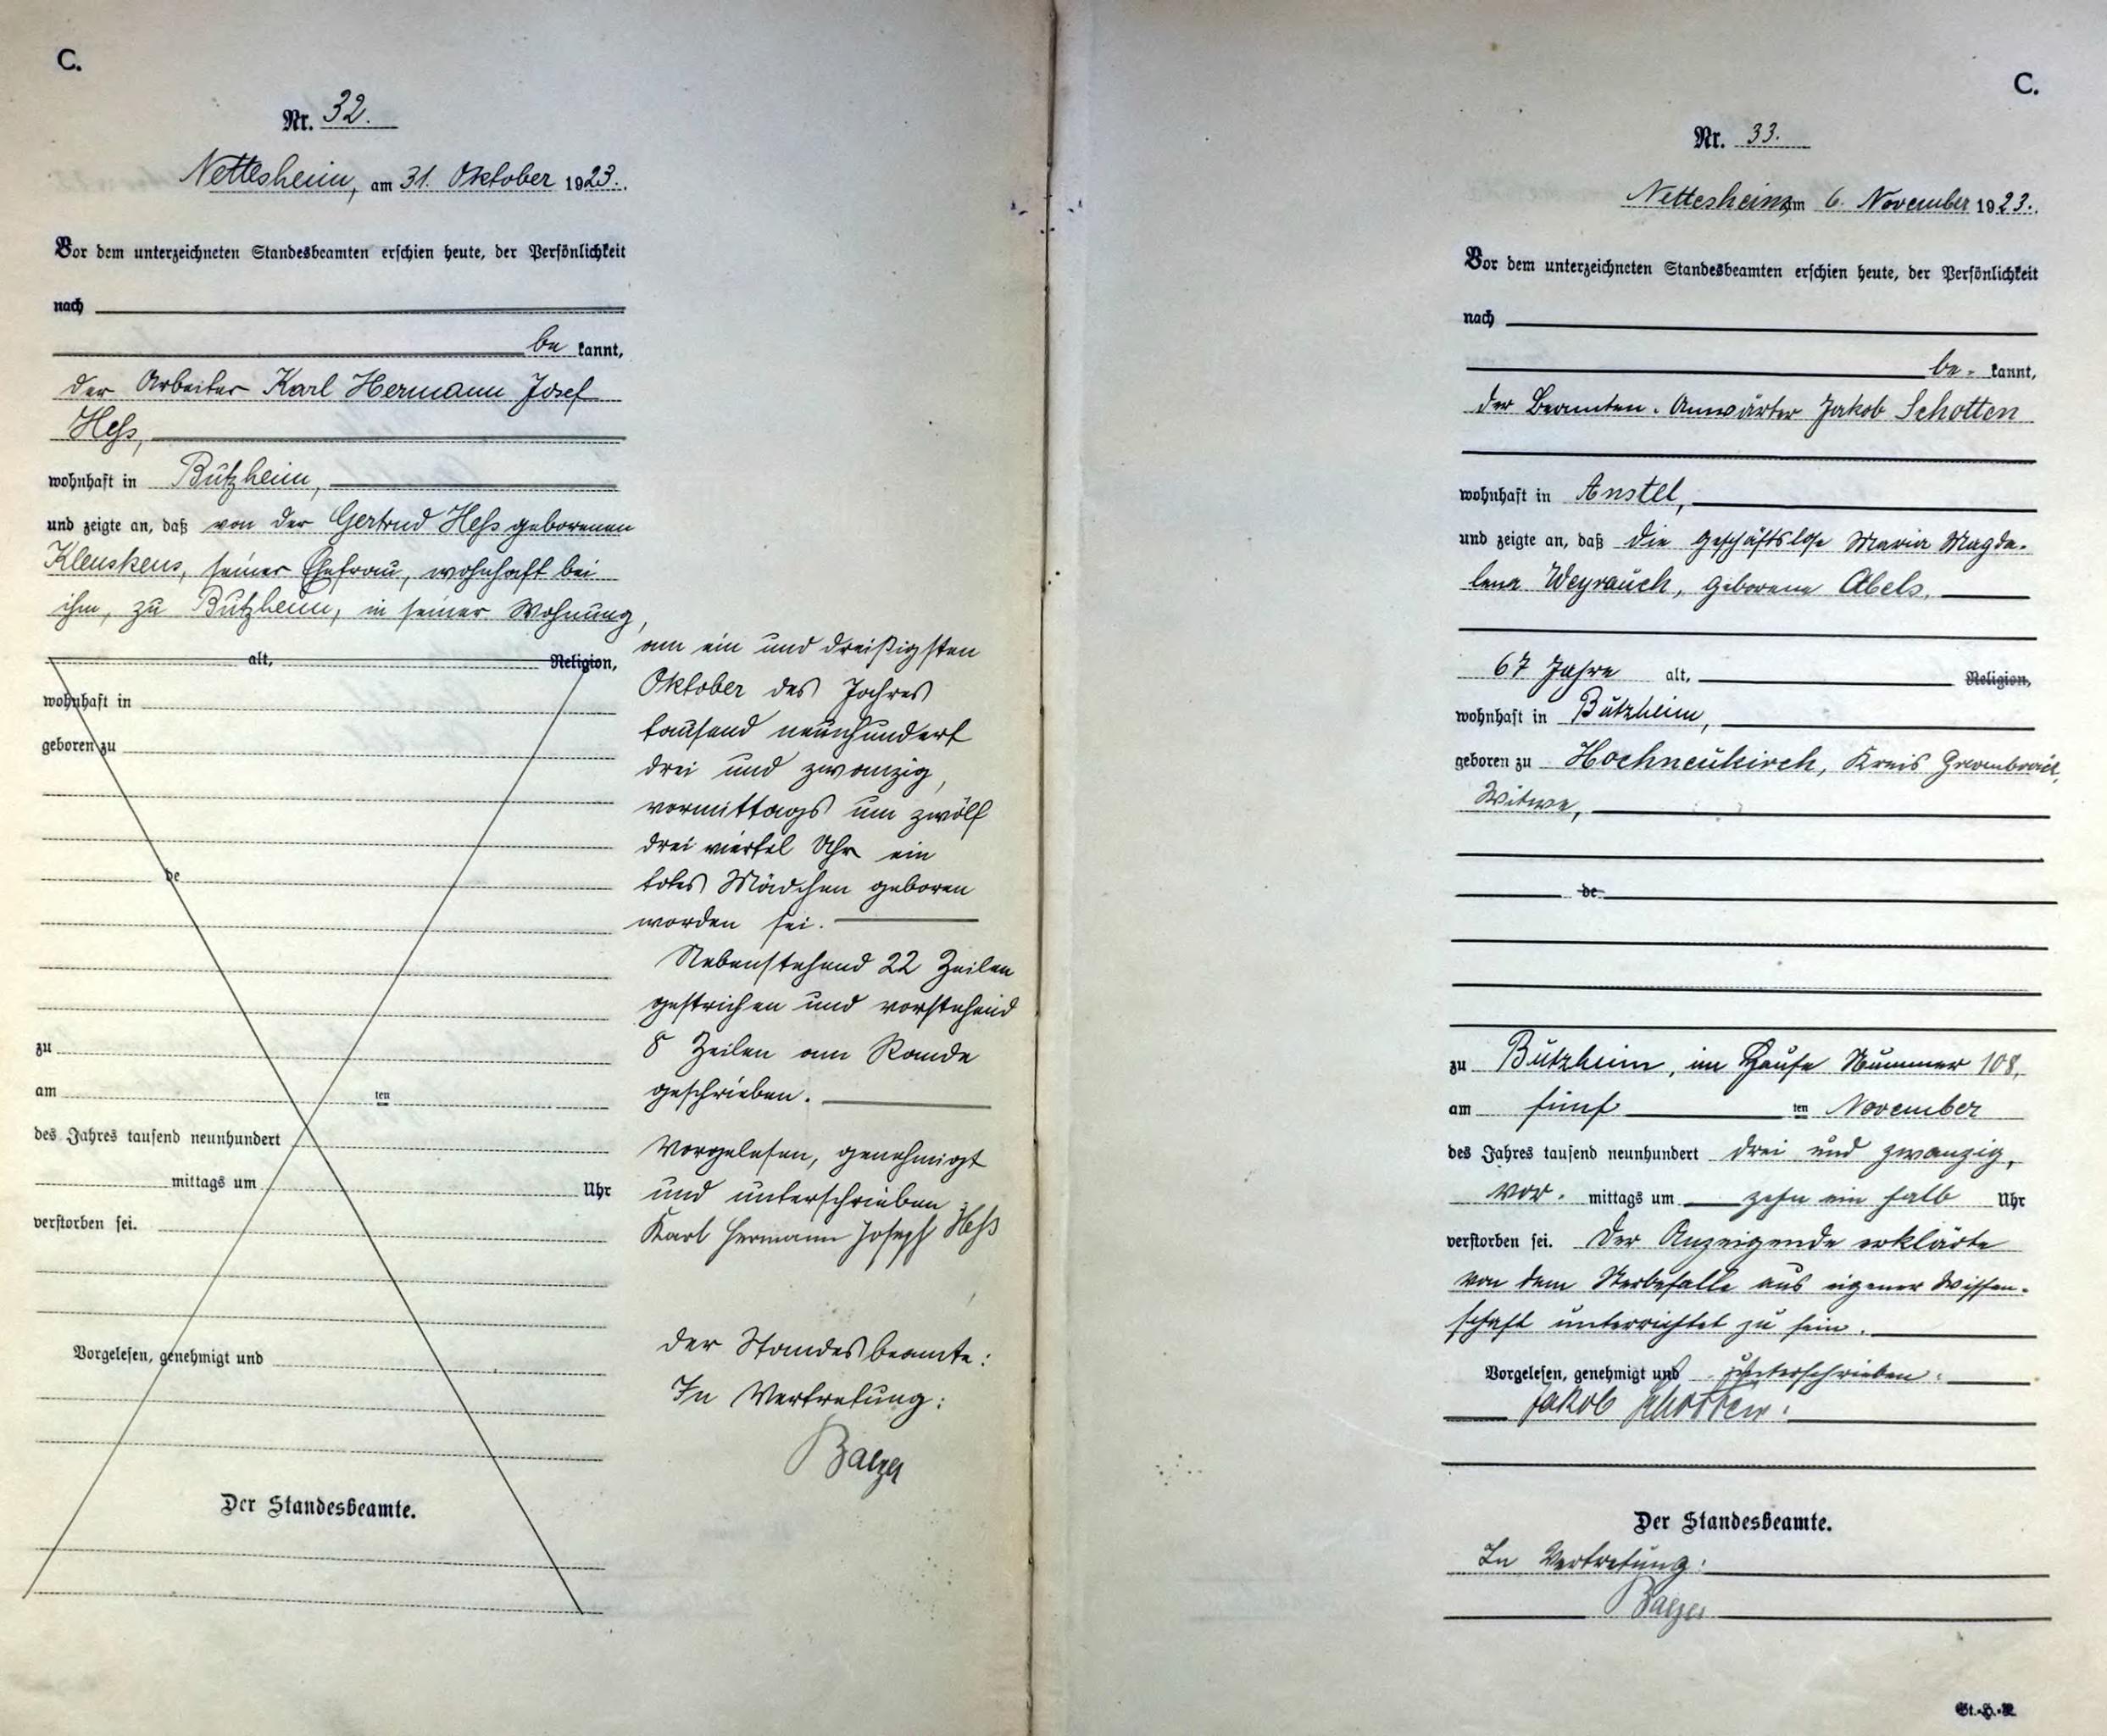 C.
Nr. 32.
Nettesheim, am 31. Oktober 1923.
Vor dem unterzeichneten Standesbeamten erschien heute, der Persönlichkeit
nach
be kannt,
der Arbeiter Karl Hermann Josef
Heß,
wohnhaft in Bützheim,
und zeigte an, daß von der Gertrud Heß geborenen
Kleuskens, seiner Ehefrau, wohnhaft bei
ihm, zu Bützheim, in seiner Wohnung,
alt, Religion,
wohnhaft in
geboren zu
de
zu
am ten
des Jahres tausend neunhundert
mittags um Uhr
verstorben sei.
Vorgelesen, genehmigt und
Der Standesbeamte.
am ein und dreißigsten
Oktober des Jahres
tausend neunhundert
drei und zwanzig,
vormittags um zwölf
drei viertel Uhr ein
totes Mädchen geboren
worden sei.
Nebenstehend 22 Zeilen
gestrichen und vorstehend
8 Zeilen am Rande
geschrieben.
Vorgelesen, genehmigt
und unterschrieben
Karl Hermann Joseph Heß
der Standesbeamte:
In Vertretung:
Balzer
C.
Nr. 33.
Nettesheim am 6. November 1923.
Vor dem unterzeichneten Standesbeamten erschien heute, der Persönlichkeit
nach
be- kannt,
der Beamten-Anwärter Jakob Schotten
wohnhaft in Anstel,
und zeigte an, daß die geschäftslose Maria Magda-
lena Weyrauch, geborene Abels,
67 Jahre alt, Religion,
wohnhaft in Bützheim,
geboren zu Hochneukirch, Kreis Grevenbroich,
Witwe,
de
zu Bützheim, im Hause Nummer 108,
am fünf ten November
des Jahres tausend neunhundert drei und zwanzig,
vor- mittags um zehn ein halb Uhr
verstorben sei. Der Anzeigende erklärte
von dem Sterbefalle aus eigener Wissen-
schaft unterrichtet zu sein.
Vorgelesen, genehmigt und unterschrieben:
Jakob Schotten.
Der Standesbeamte.
In Vertretung:
Balzer